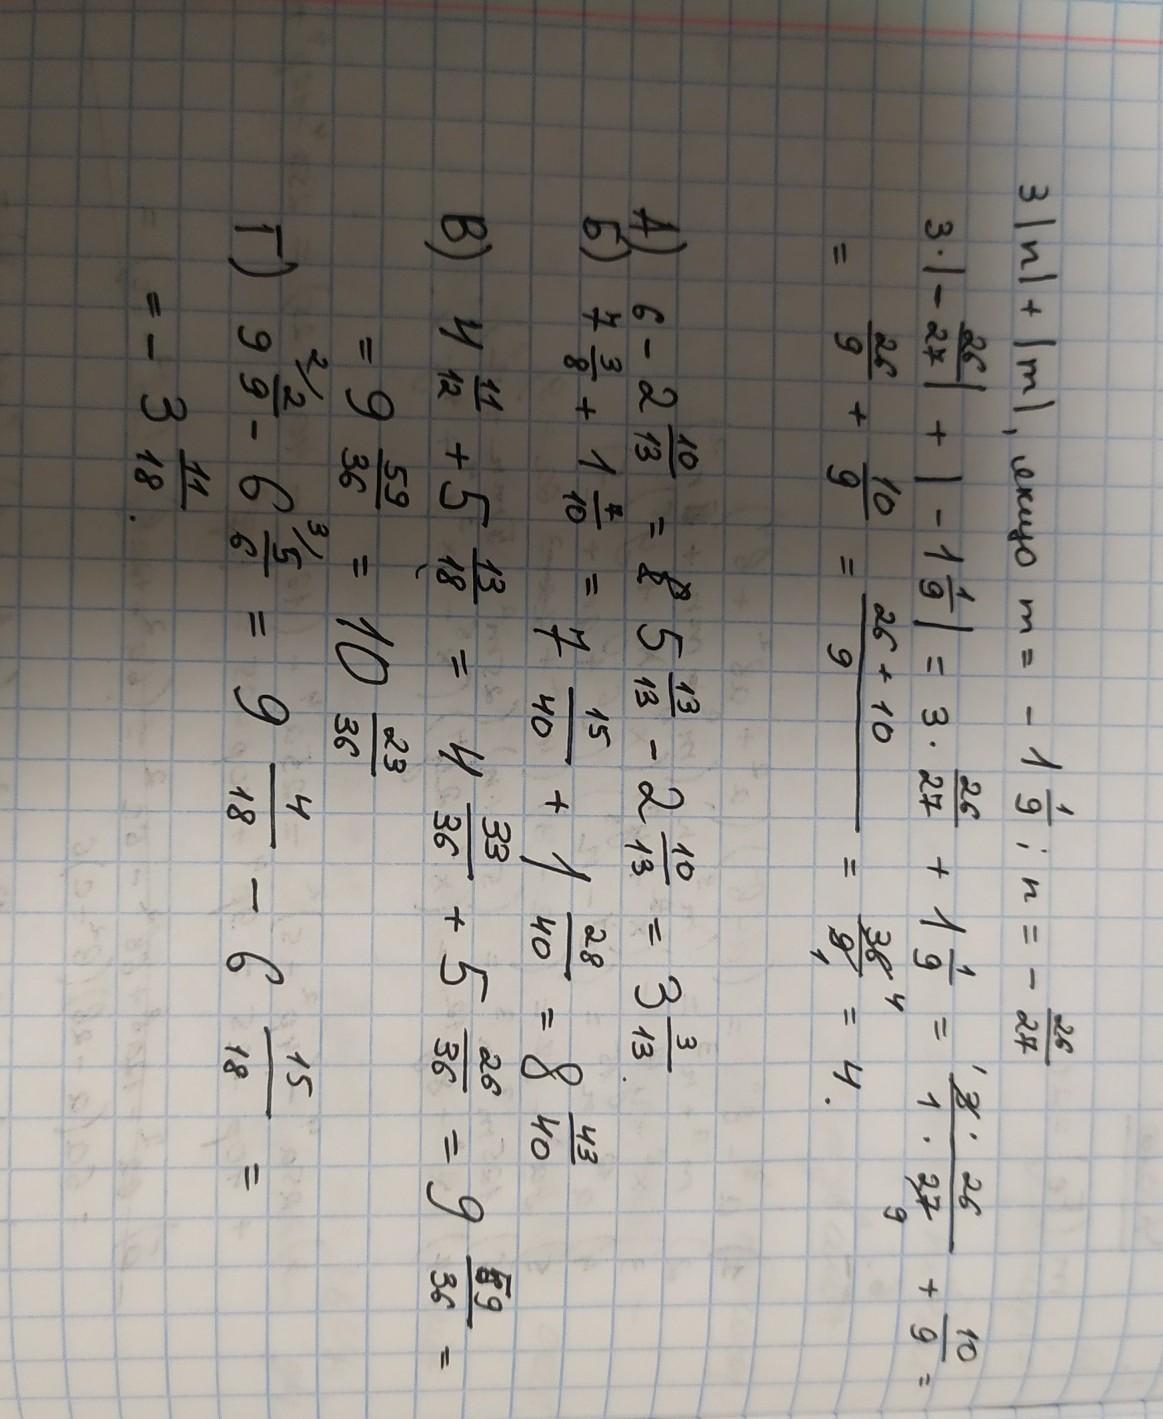 3|n| + |m|, якщо m = - 1 1/9 ; n = - 26/27
3·|- 26/27| + |- 1 1/9| = 3 · 26/27 + 1 1/9 = 3 · 26 / 1 · 27 + 10/9 =
= 26/9 + 10/9 = 26 + 10 / 9 = 36/9 = 4.
А) 6 - 2 10/13 = 5 13/13 - 2 10/13 = 3 3/13.
Б) 7 3/8 + 1 7/10 = 7 15/40 + 1 28/40 = 8 43/40
В) 4 11/12 + 5 13/18 = 4 33/36 + 5 26/36 = 9 59/36 =
= 9 59/36 = 10 23/36
Г) 9 2/9 - 6 5/6 = 9 4/18 - 6 15/18 =
= - 3 11/18.